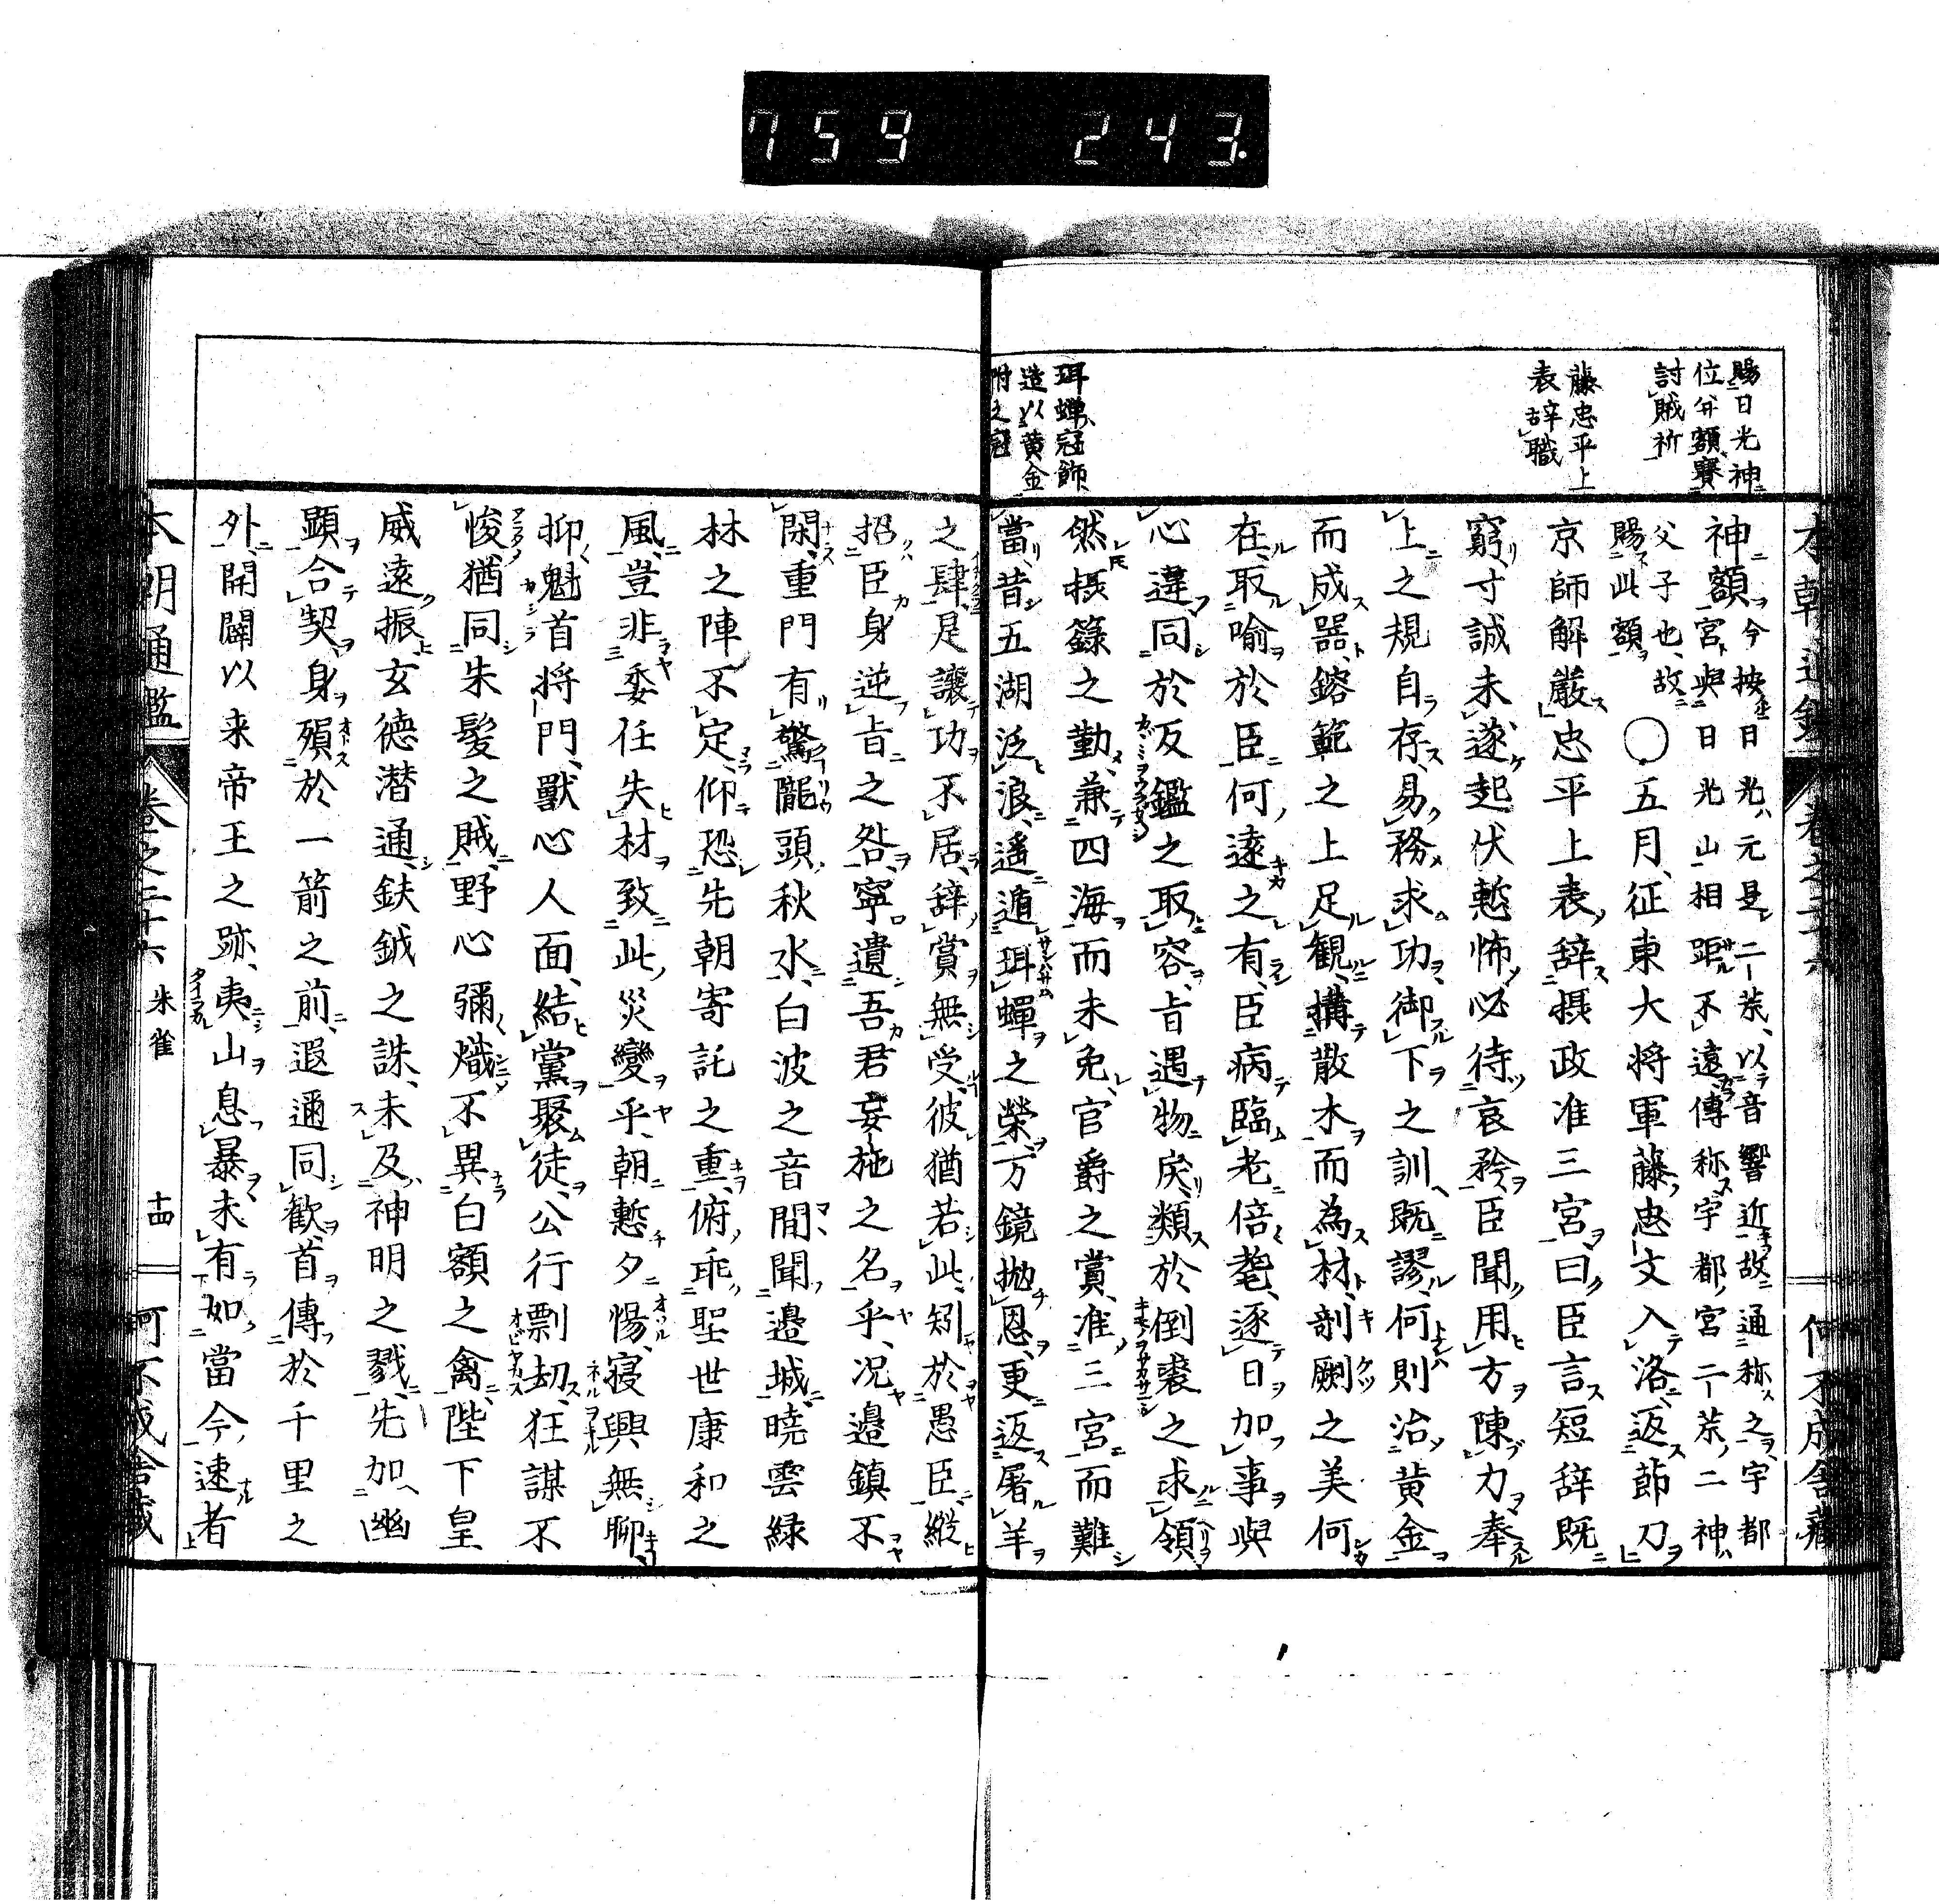 759 243.
賜日光神
位分額賽
討賊祈
藤忠平上
表辞職
珥蟬冠飾
造以黄金
附之冠
本朝通鑑 巻之二十六 何不成舎蔵
神額今按日光元是二荒以音響近故通称之宇都
宮與日光山相距不遠傳称宇都宮二荒二神
父子也故
賜此額〇五月征東大将軍藤忠文入洛返節刀
京師解厳忠平上表辞摂政准三宮曰臣言短辞既
窮寸誠未遂起伏慙怖必待哀矜臣聞用方陳力奉
上之規自存易務求功御下之訓既謬何則治黄金
而成器鎔範之上足観構散木而為材剞劂之美何
在取喩於臣何遠之有臣病臨老倍耄逐日加事與
心違同於反鑑之取容旨遇物戻類於倒裘之求領
然摂籙之勤兼四海而未免官爵之賞准三宮而難
當昔五湖泛浪遥遁珥蟬之榮万鏡抛恩更返屠羊
之肆是譲功不居辞賞無受彼猶若此矧於愚臣縦
招臣身逆旨之咎寧遺吾君妄施之名乎況邉鎮不
閑重門有驚隴頭秋水白波之音間聞邉城暁雲緑
林之陣不定仰恐先朝寄託之重俯乖聖世康和之
風豈非委任失材致此災變乎朝慙夕惕寝興無聊
抑魁首将門獣心人面結黨聚徒公行剽劫狂謀不
悛猶同朱髪之賊野心彌熾不異白額之禽陛下皇
威遠振玄徳潜通鈇鉞之誅未及神明之戮先加幽
顕合契身殞於一箭之前遐邇同歓首傳於千里之
外開闢以来帝王之跡夷山息暴未有如當今速者
本朝通鑑 巻之二十六 朱雀 十四 何不成舎蔵